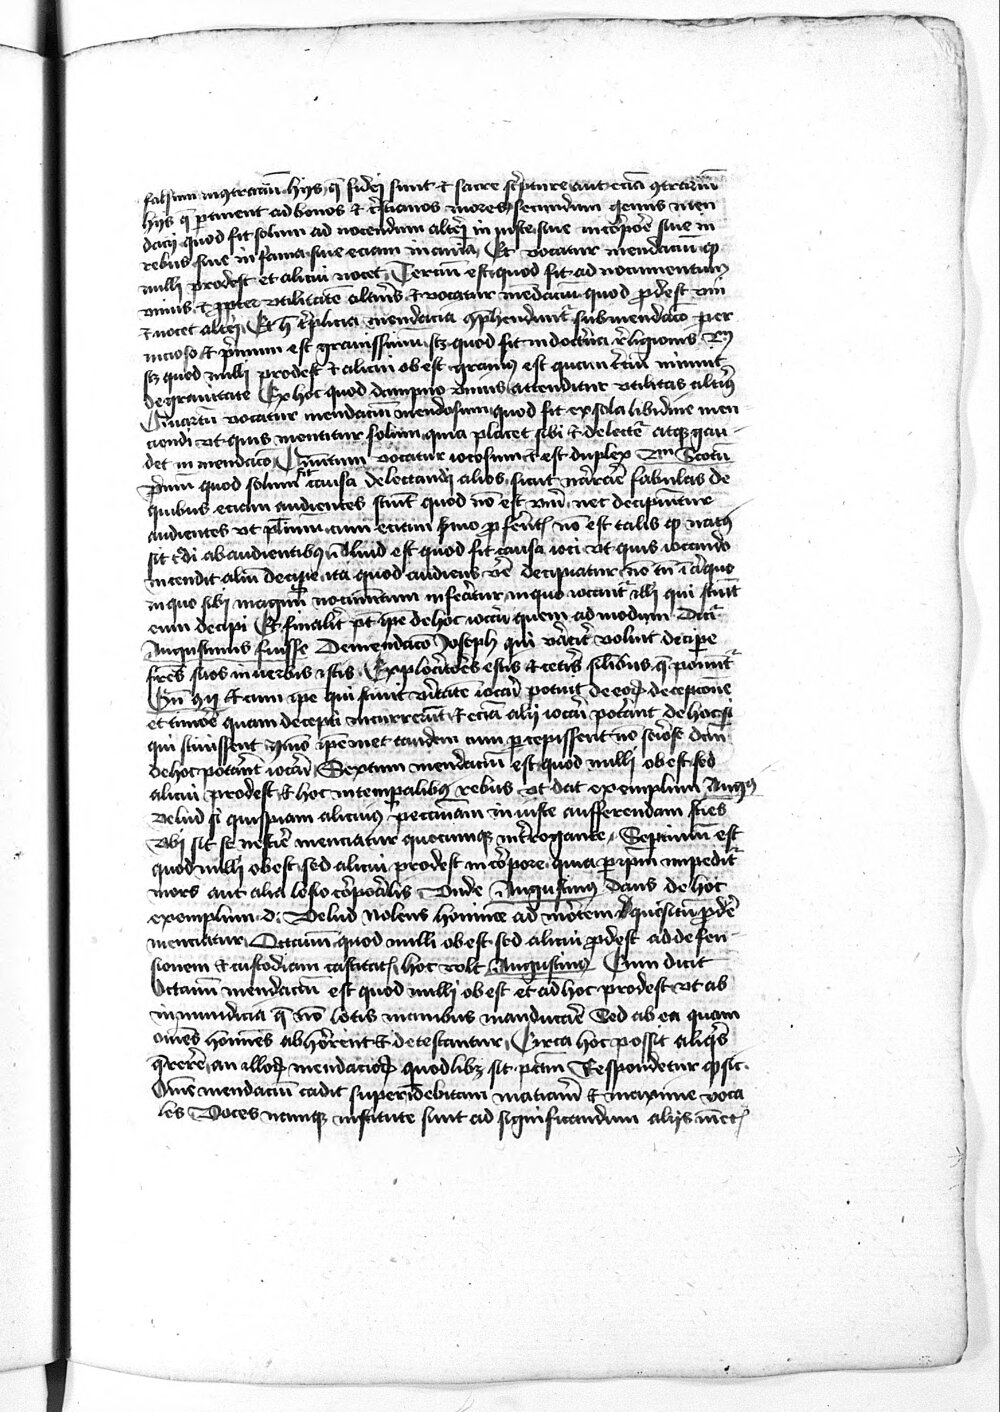 falsum contrarium hijs que fidei sunt et sacre scripture aut eciam contrarium
hijs que pertinent ad bonos et cristianos mores secundum genus men
dacij quod fit solum ad nocendum alteri in iuste siue in corpore siue in
rebus siue in fama siue eciam in anima Et vocatur mendacium quod
nulli prodest et alicui nocet Tercium est quod fit ad nocumentum
vnius et propter vtilitatem alterius et vocatur mendacium quod prodest vni
et nocet alteri Et hec triplicia mendacia comprehenduntur sub mendacio per
nicioso et primum est grauissimum scilicet quod fit in doctrina religionis
scilicet quod nulli prodest et alicui obest grauius est quam tercium minuit
de grauitate Ex hoc quod dampno vnius attenditur vtilitas alterius
Quartum vocatur mendacium mendosum quod fit ex sola libidine men
ciendi vt quis mentitur solum quia placet sibi et delectetur atque gau
det in mendacio Quintum vocatur iocosum et est duplex Scotum
Primum quod solum fit causa delectandi alios sicut narrare fabulas de
quibus eciam audientes sciunt quod non est verum nec decipiuntur
audientes vt plurimum cum eciam sermo proferentis non est talis quod natus
sit credi ab audientibus Aliud est quod fit causa ioci vt quis iocando
intendit alium decipere ita quod audiens vere decipiatur non tamen in aliquo
in quo sibi magnum nocumentum inferatur in quo iocantur illi qui sciunt
eum decipi Et finaliter potest ipse de hoc iocari quem ad modum
Augustinus fuisse De mendacio Joseph qui volunt decipere
fratres suos in verbis istis Exploratores estis et ceteris similibus que ponuntur
Gen xlij et cum ipse qui sciuit veritatem iocari potuit de eorum decepcione
et timore quam decepti incurrerunt et eciam alij iocari poterant de hoc si
qui sciuissent ymmo ipsemet tandem cum percepissent non seriose
de hoc poterant iocari Sextum mendacium est quod nulli obest sed
alicui prodest et hoc in temporalibus rebus vt dat exemplum Augustinus
Velud si quispiam alicuius peccuniam in iuste aufferendam sciens
vbi sit se nescire menciatur quocumque interrogante Septimum est
quod nulli obest sed alicui prodest in corpore quia per ipsum impeditur
mors aut alia lesio corporalis Vnde Augustinus dans de hoc
exemplum d: Velud nolens hominem ad mortem quesitum prodere
menciatur Octauum quod nulli obest sed alicui prodest ad defen
sionem et custodiam castitatis hoc vult Augustinus Cum dicit
Octauum mendacium est quod nulli obest et ad hoc prodest vt ab
in mundicia que non lotis manibus manducare Sed ab ea quam
omnes homines abhorrent et detestantur Circa hoc possit aliquis
querere an illorum mendaciorum quodlibet sit peccatum Respondetur quod sic
Omne mendacium cadit super indebitam materiam et maxime voca
les Voces namque institute sunt ad significandum alijs